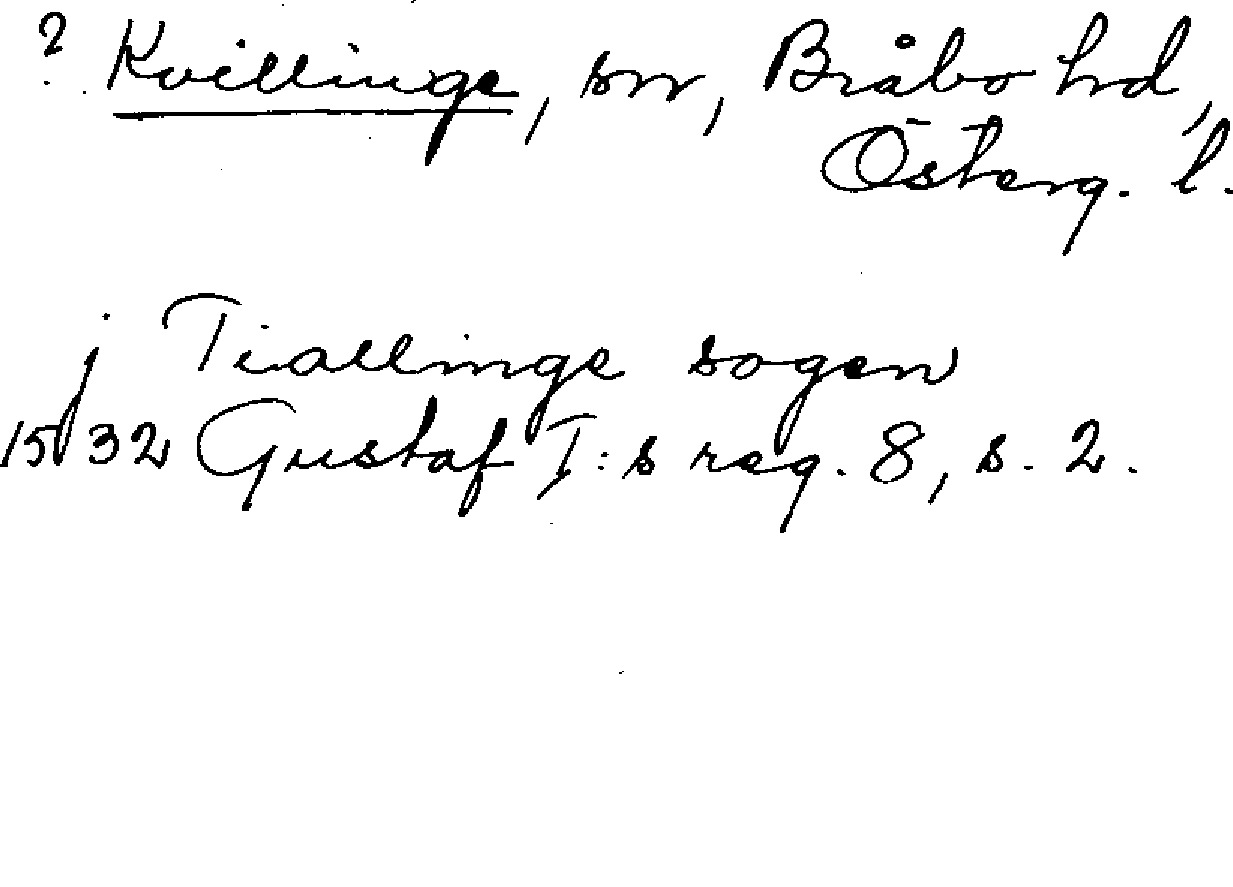 ? Kvillinge, sn, Bråbo hd,
Österg. l.
j Tiallinge sogen
1532 Gustaf I:s reg. 8, s. 2.